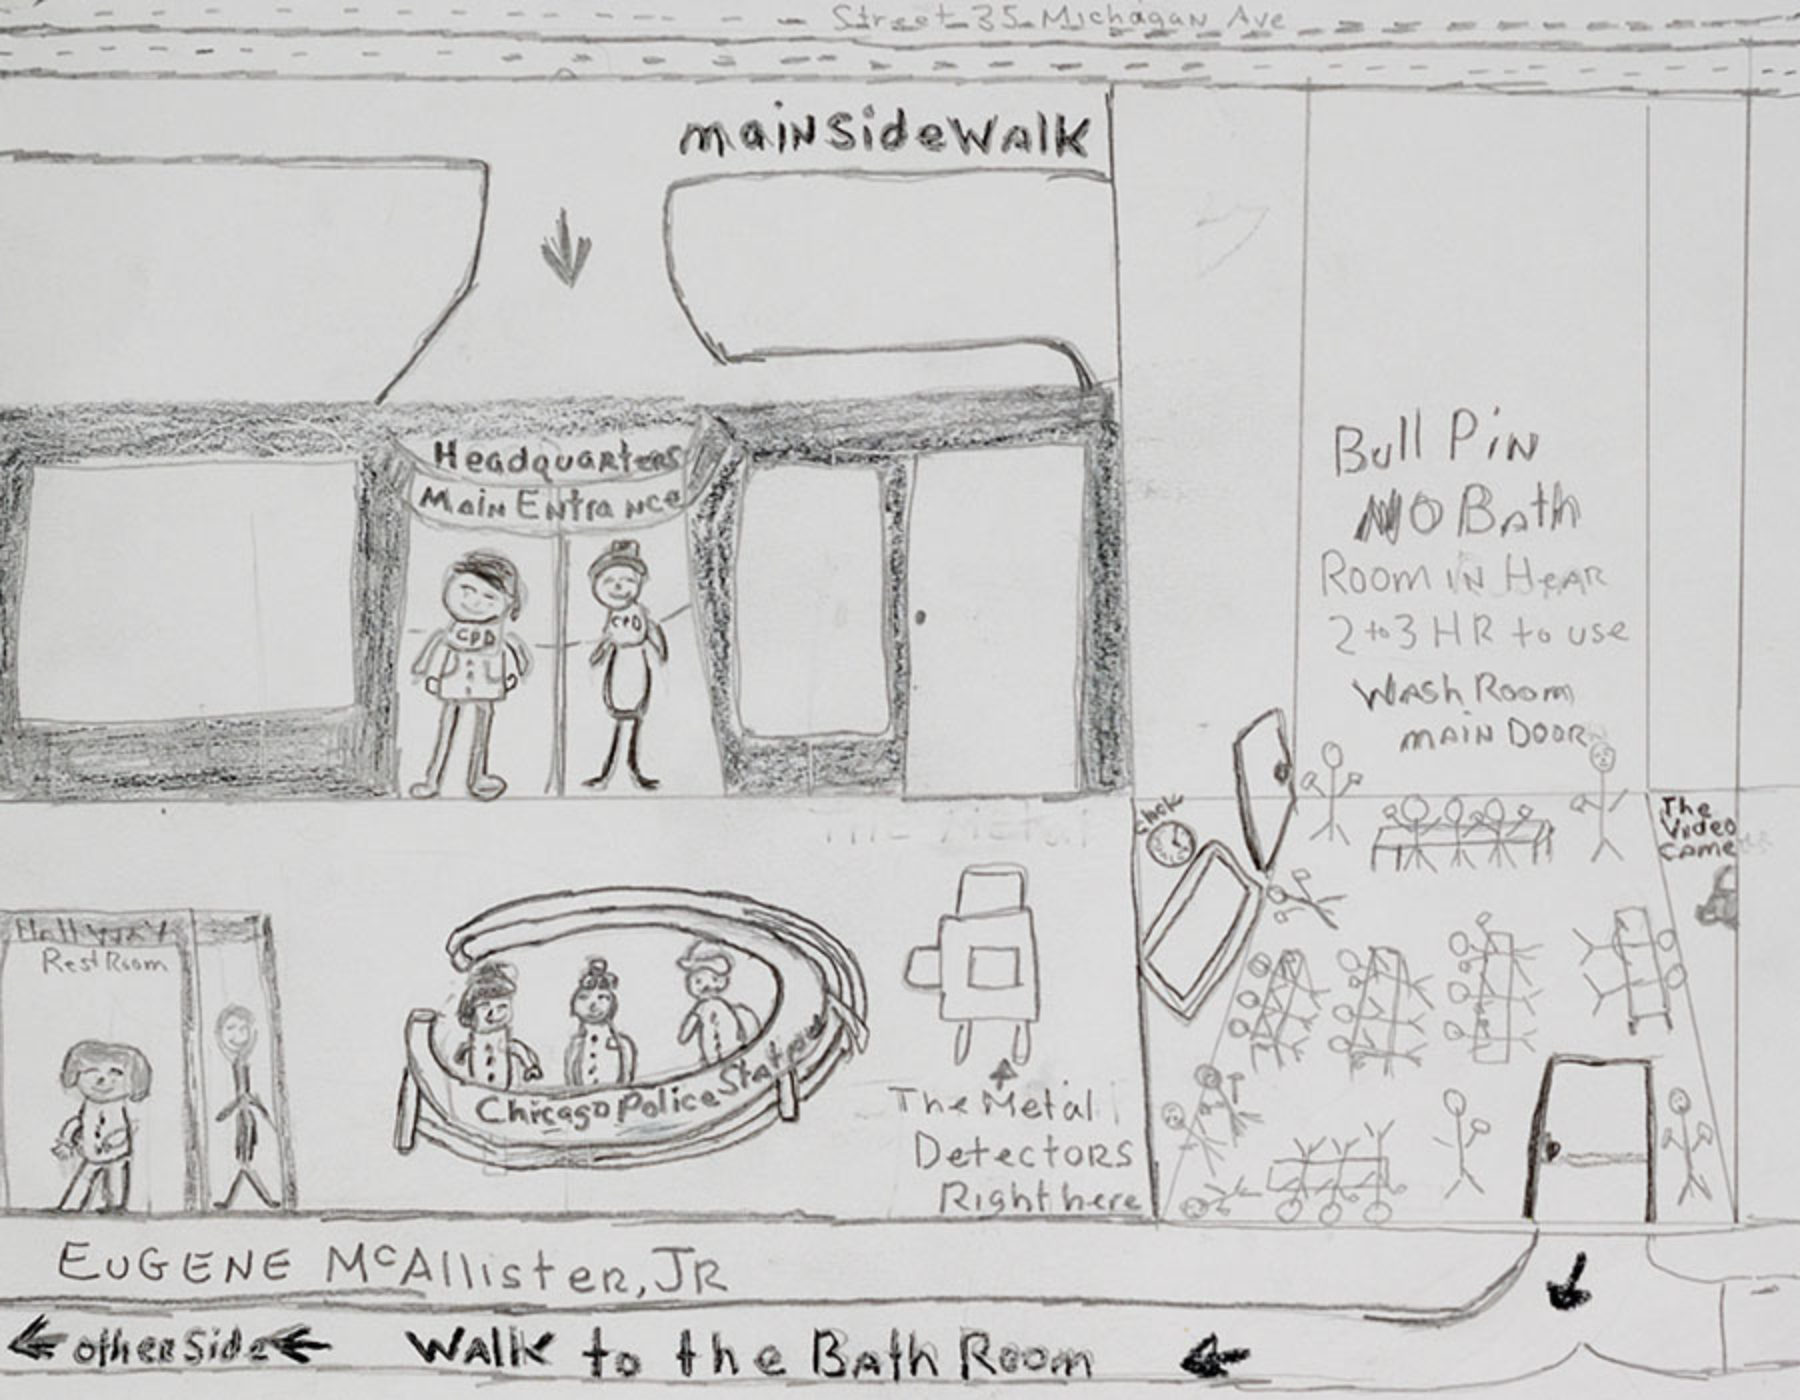 Street 35 Michagan Ave
main Side Walk
Headquarters
Main Entrance
CPD
CPD
Bull Pin
NO Bath
Room in Hear
2 to 3 HR to use
Wash Room
main Door
Clock
The
Video
Came
Hall way
Rest Room
Chicago Police Station
The Metal
The Metal
Detectors
Right here
Eugene McAllister, JR
other Side
Walk to the Bath Room